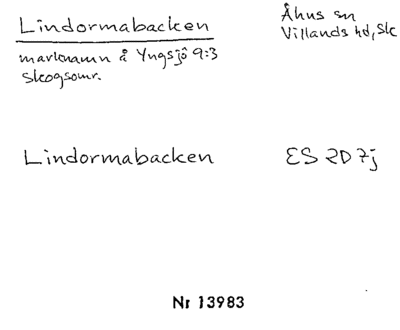 Lindormabacken
Åhus sn
Villands hd, Sk
marknamn å Yngsjö 9:3
Skogsomr.
Lindormabacken
ES 2D 7j
Nr 13983